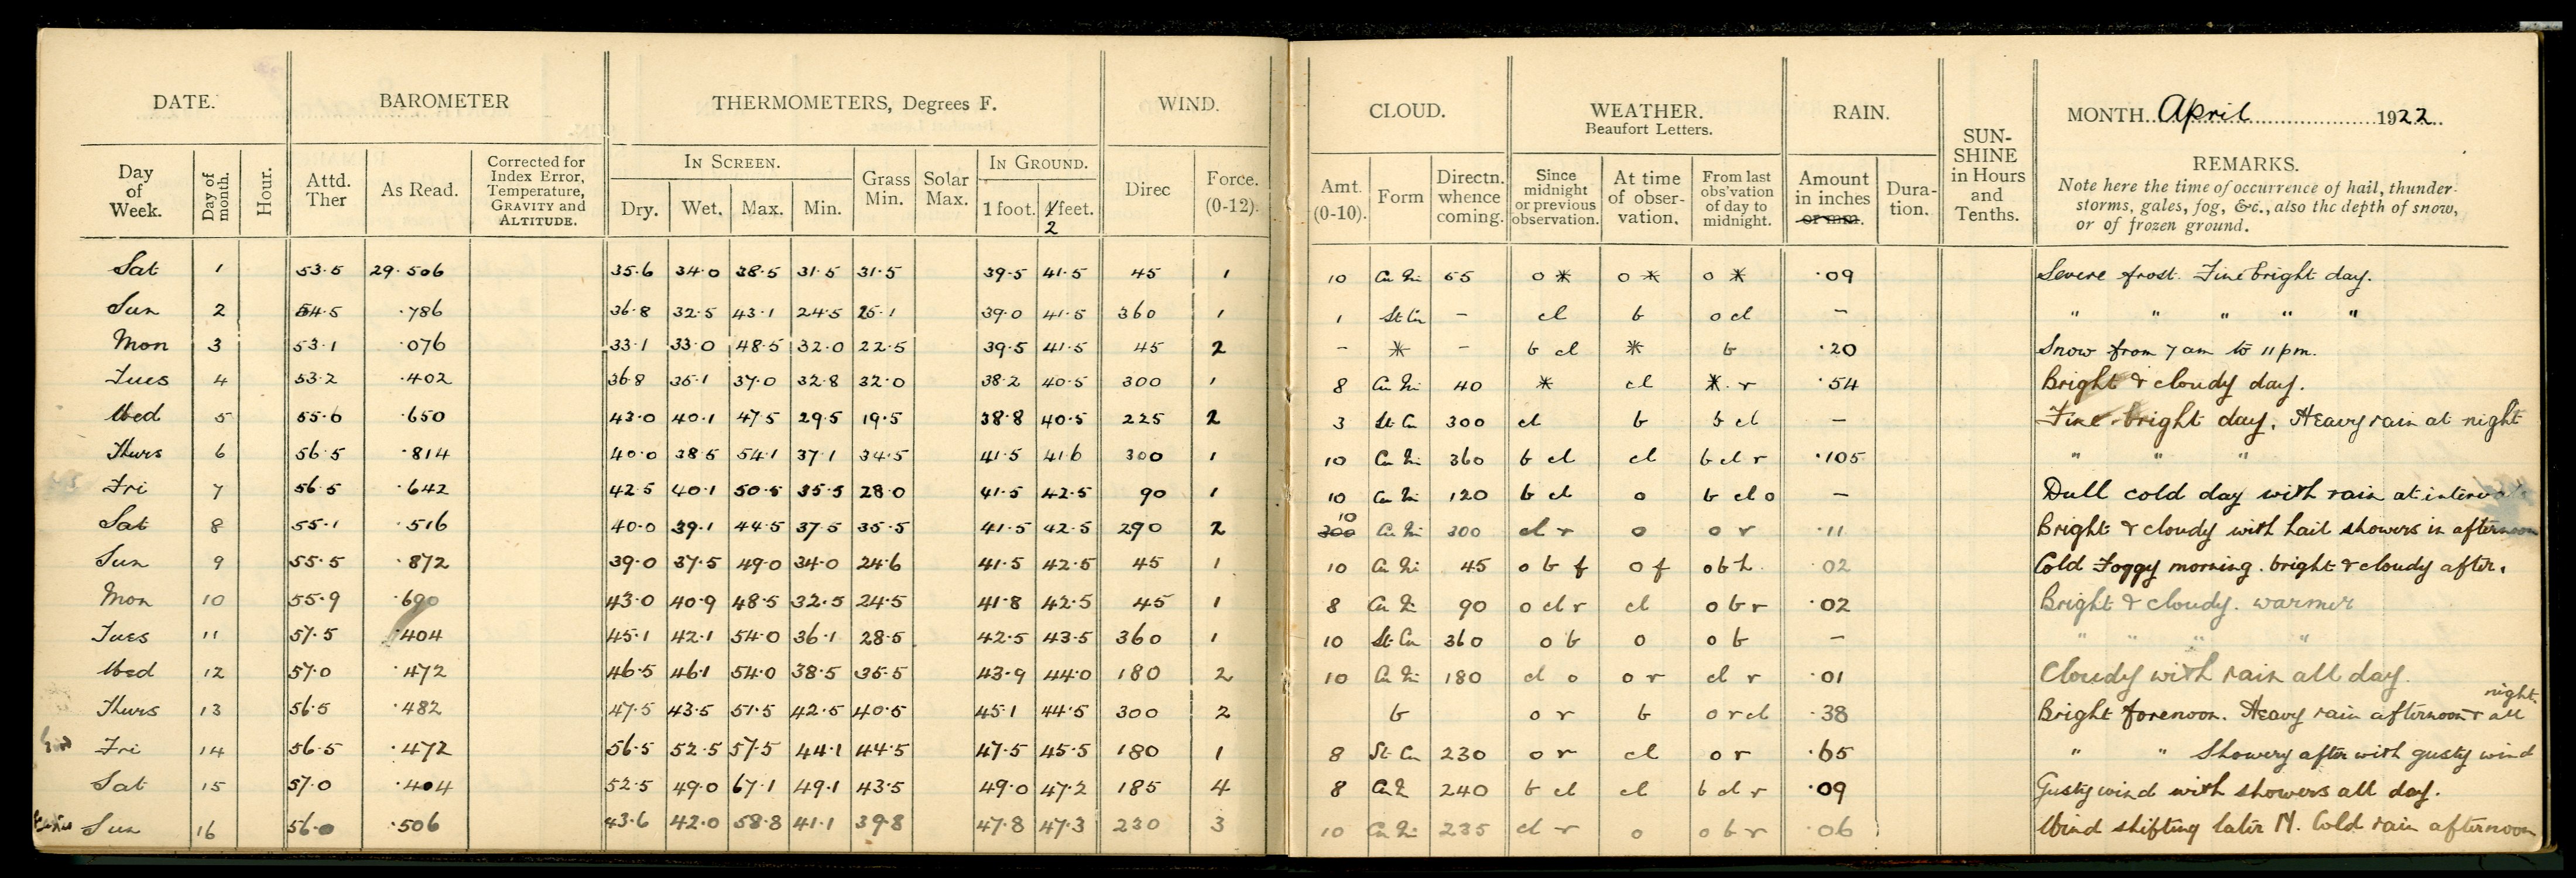 DATE. BAROMETER THERMOMETERS, Degrees F. WIND. CLOUD. WEATHER. Beaufort Letters. RAIN. SUN-SHINE in Hours and Tenths. MONTH April 1922
Day of Week. Day of month. Hour. Attd. Ther As Read. Corrected for Index Error, Temperature, GRAVITY and ALTITUDE. IN SCREEN. Dry. Wet. Max. Min. Grass Min. Solar Max. IN GROUND. 1 foot. 2 feet. Direc Force. (0-12). Amt. (0-10). Form Directn. whence coming. Since midnight or previous observation. At time of obser-vation. From last obs'vation of day to midnight. Amount in inches or mm. Dura-tion. REMARKS.
Note here the time of occurrence of hail, thunder-
storms, gales, fog, &c., also the depth of snow,
or of frozen ground.
Sat 1 53.5 29.506 35.6 34.0 38.5 31.5 31.5 39.5 41.5 45 1 10 Cu Ni 65 o * o * o * .09 Severe frost. Fine bright day.
Sun 2 54.5 .786 36.8 32.5 43.1 24.5 25.1 39.0 41.5 360 1 1 St Cu – cl b o cl – " " " " "
Mon 3 53.1 .076 33.1 33.0 48.5 32.0 22.5 39.5 41.5 45 2 – * – b cl * b .20 Snow from 7 am to 11 pm.
Tues 4 53.2 .402 36.8 35.1 37.0 32.8 32.0 38.2 40.5 300 1 8 Cu Ni 40 * cl * r .54 Bright & cloudy day.
Wed 5 55.0 .650 43.0 40.1 47.5 29.5 19.5 38.8 40.5 225 2 3 St Cu 300 cl b b cl – Fine bright day. Heavy rain at night
Thurs 6 56.5 .814 40.0 38.5 54.1 37.1 34.5 41.5 41.6 300 1 10 Cu Ni 360 b cl cl b cl r .105 " " "
Fri 7 56.5 .642 42.5 40.1 50.5 35.5 28.0 41.5 42.5 90 1 10 Cu Ni 120 b cl o b cl o – Dull cold day with rain at intervals
Sat 8 55.1 .516 40.0 39.1 44.5 37.5 35.5 41.5 42.5 290 2 10 300 Cu Ni 300 cl r o o r .11 Bright & cloudy with hail showers in afternoon
Sun 9 55.5 .872 39.0 37.5 49.0 34.0 24.6 41.5 42.5 45 1 10 Cu Ni 45 o b f o f o b h .02 Cold Foggy morning. bright & cloudy after.
Mon 10 55.9 .690 43.0 40.9 48.5 32.5 24.5 41.8 42.5 45 1 8 Cu Ni 90 o cl r cl o b r .02 Bright & cloudy. warmer
Tues 11 57.5 .404 45.1 42.1 54.0 36.1 28.5 42.5 43.5 360 1 10 St Cu 360 o b o o b – " " " "
Wed 12 57.0 .472 46.5 46.1 54.0 38.5 35.5 43.9 44.0 180 2 10 Cu Ni 180 cl o o r cl r .01 Cloudy with rain all day.
Thurs 13 56.5 .482 47.5 43.5 51.5 42.5 40.5 45.1 44.5 300 2 b o r b o r cl .38 Bright forenoon. Heavy rain afternoon & all night
Fri 14 56.5 .472 56.5 52.5 57.5 44.1 44.5 47.5 45.5 180 1 8 St Cu 230 o r cl o r .65 " " Showery after with gusty wind
Sat 15 57.0 .404 52.5 49.0 67.1 49.1 43.5 49.0 47.2 185 4 8 Cu Ni 240 b cl cl b cl r .09 Gusty wind with showers all day.
Easter Sun 16 56.0 .506 43.6 42.0 58.8 41.1 39.8 47.8 47.3 230 3 10 Cu Ni 235 cl r o o b r .06 Wind shifting later N. Cold rain afternoon